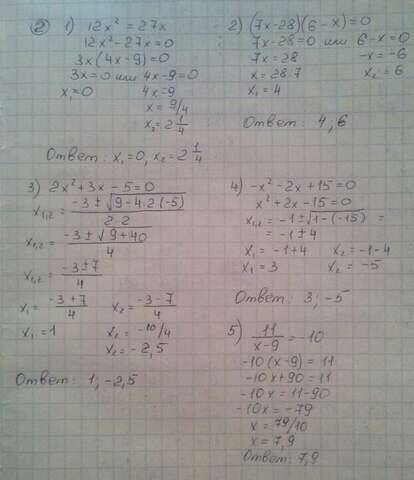 2) 1) 12x² = 27x
12x² - 27x = 0
3x(4x - 9) = 0
3x = 0 или 4x - 9 = 0
x₁ = 0 4x = 9
x = 9/4
x₂ = 2 1/4
Ответ: x₁ = 0, x₂ = 2 1/4
2) (7x - 28)(6 - x) = 0
7x - 28 = 0 или 6 - x = 0
7x = 28 -x = -6
x = 28:7 x₂ = 6
x₁ = 4
Ответ: 4, 6
3) 2x² + 3x - 5 = 0
x₁,₂ = (-3 ± √(9 - 4·2(-5)))/(2·2)
x₁,₂ = (-3 ± √(9 + 40))/4
x₁,₂ = (-3 ± 7)/4
x₁ = (-3 + 7)/4 x₂ = (-3 - 7)/4
x₁ = 1 x₂ = -10/4
x₂ = -2,5
Ответ: 1; -2,5
4) -x² - 2x + 15 = 0
x² + 2x - 15 = 0
x₁,₂ = -1 ± √(1 - (-15)) =
= -1 ± 4
x₁ = -1 + 4 x₂ = -1 - 4
x₁ = 3 x₂ = -5
Ответ: 3; -5
5) 11/(x - 9) = -10
-10(x - 9) = 11
-10x + 90 = 11
-10x = 11 - 90
-10x = -79
x = 79/10
x = 7,9
Ответ: 7,9